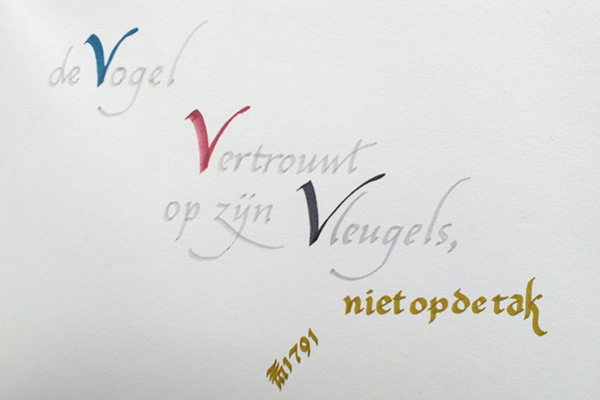 de Vogel
Vertrouwt
op zijn Vleugels,
niet op de tak
1791